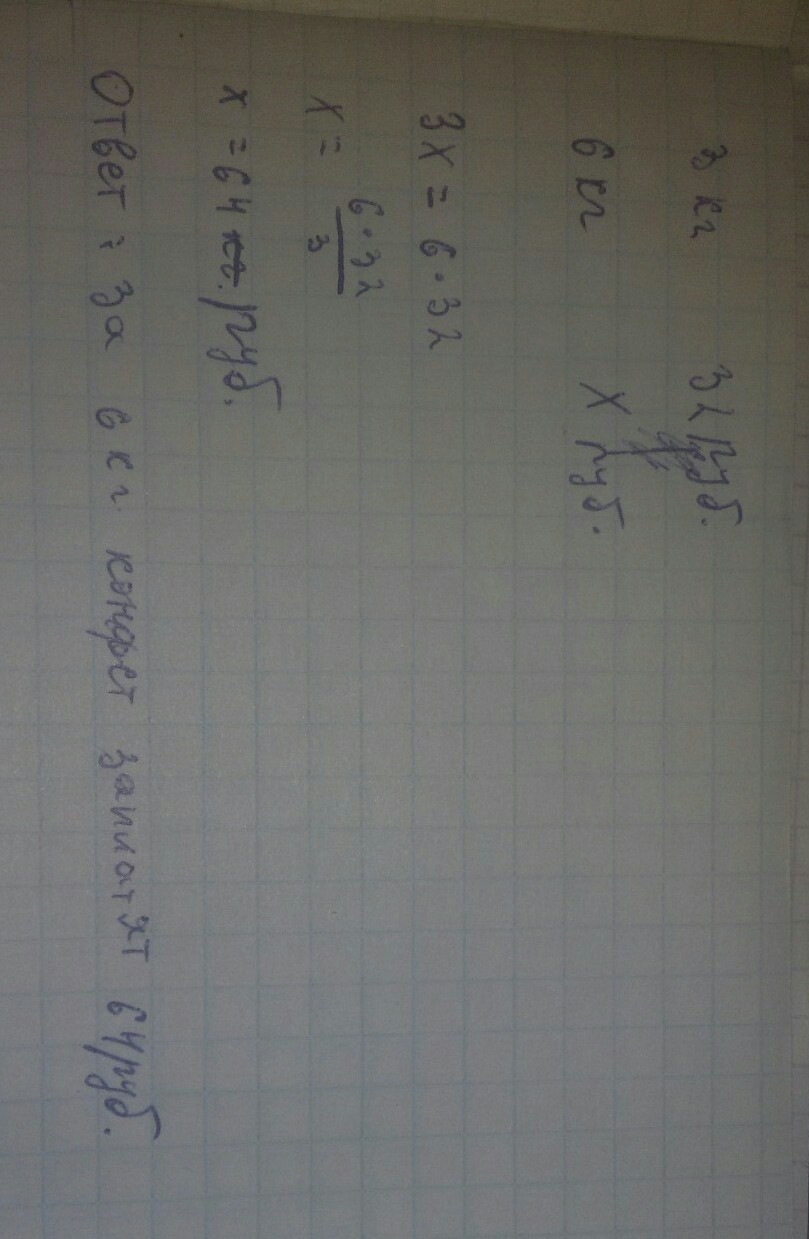 3 кг 32 руб.
6 кг X руб.
3X = 6 · 32
X = 6·32 / 3
x = 64 кг. руб.
Ответ: за 6 кг. конфет заплатят 64 руб.